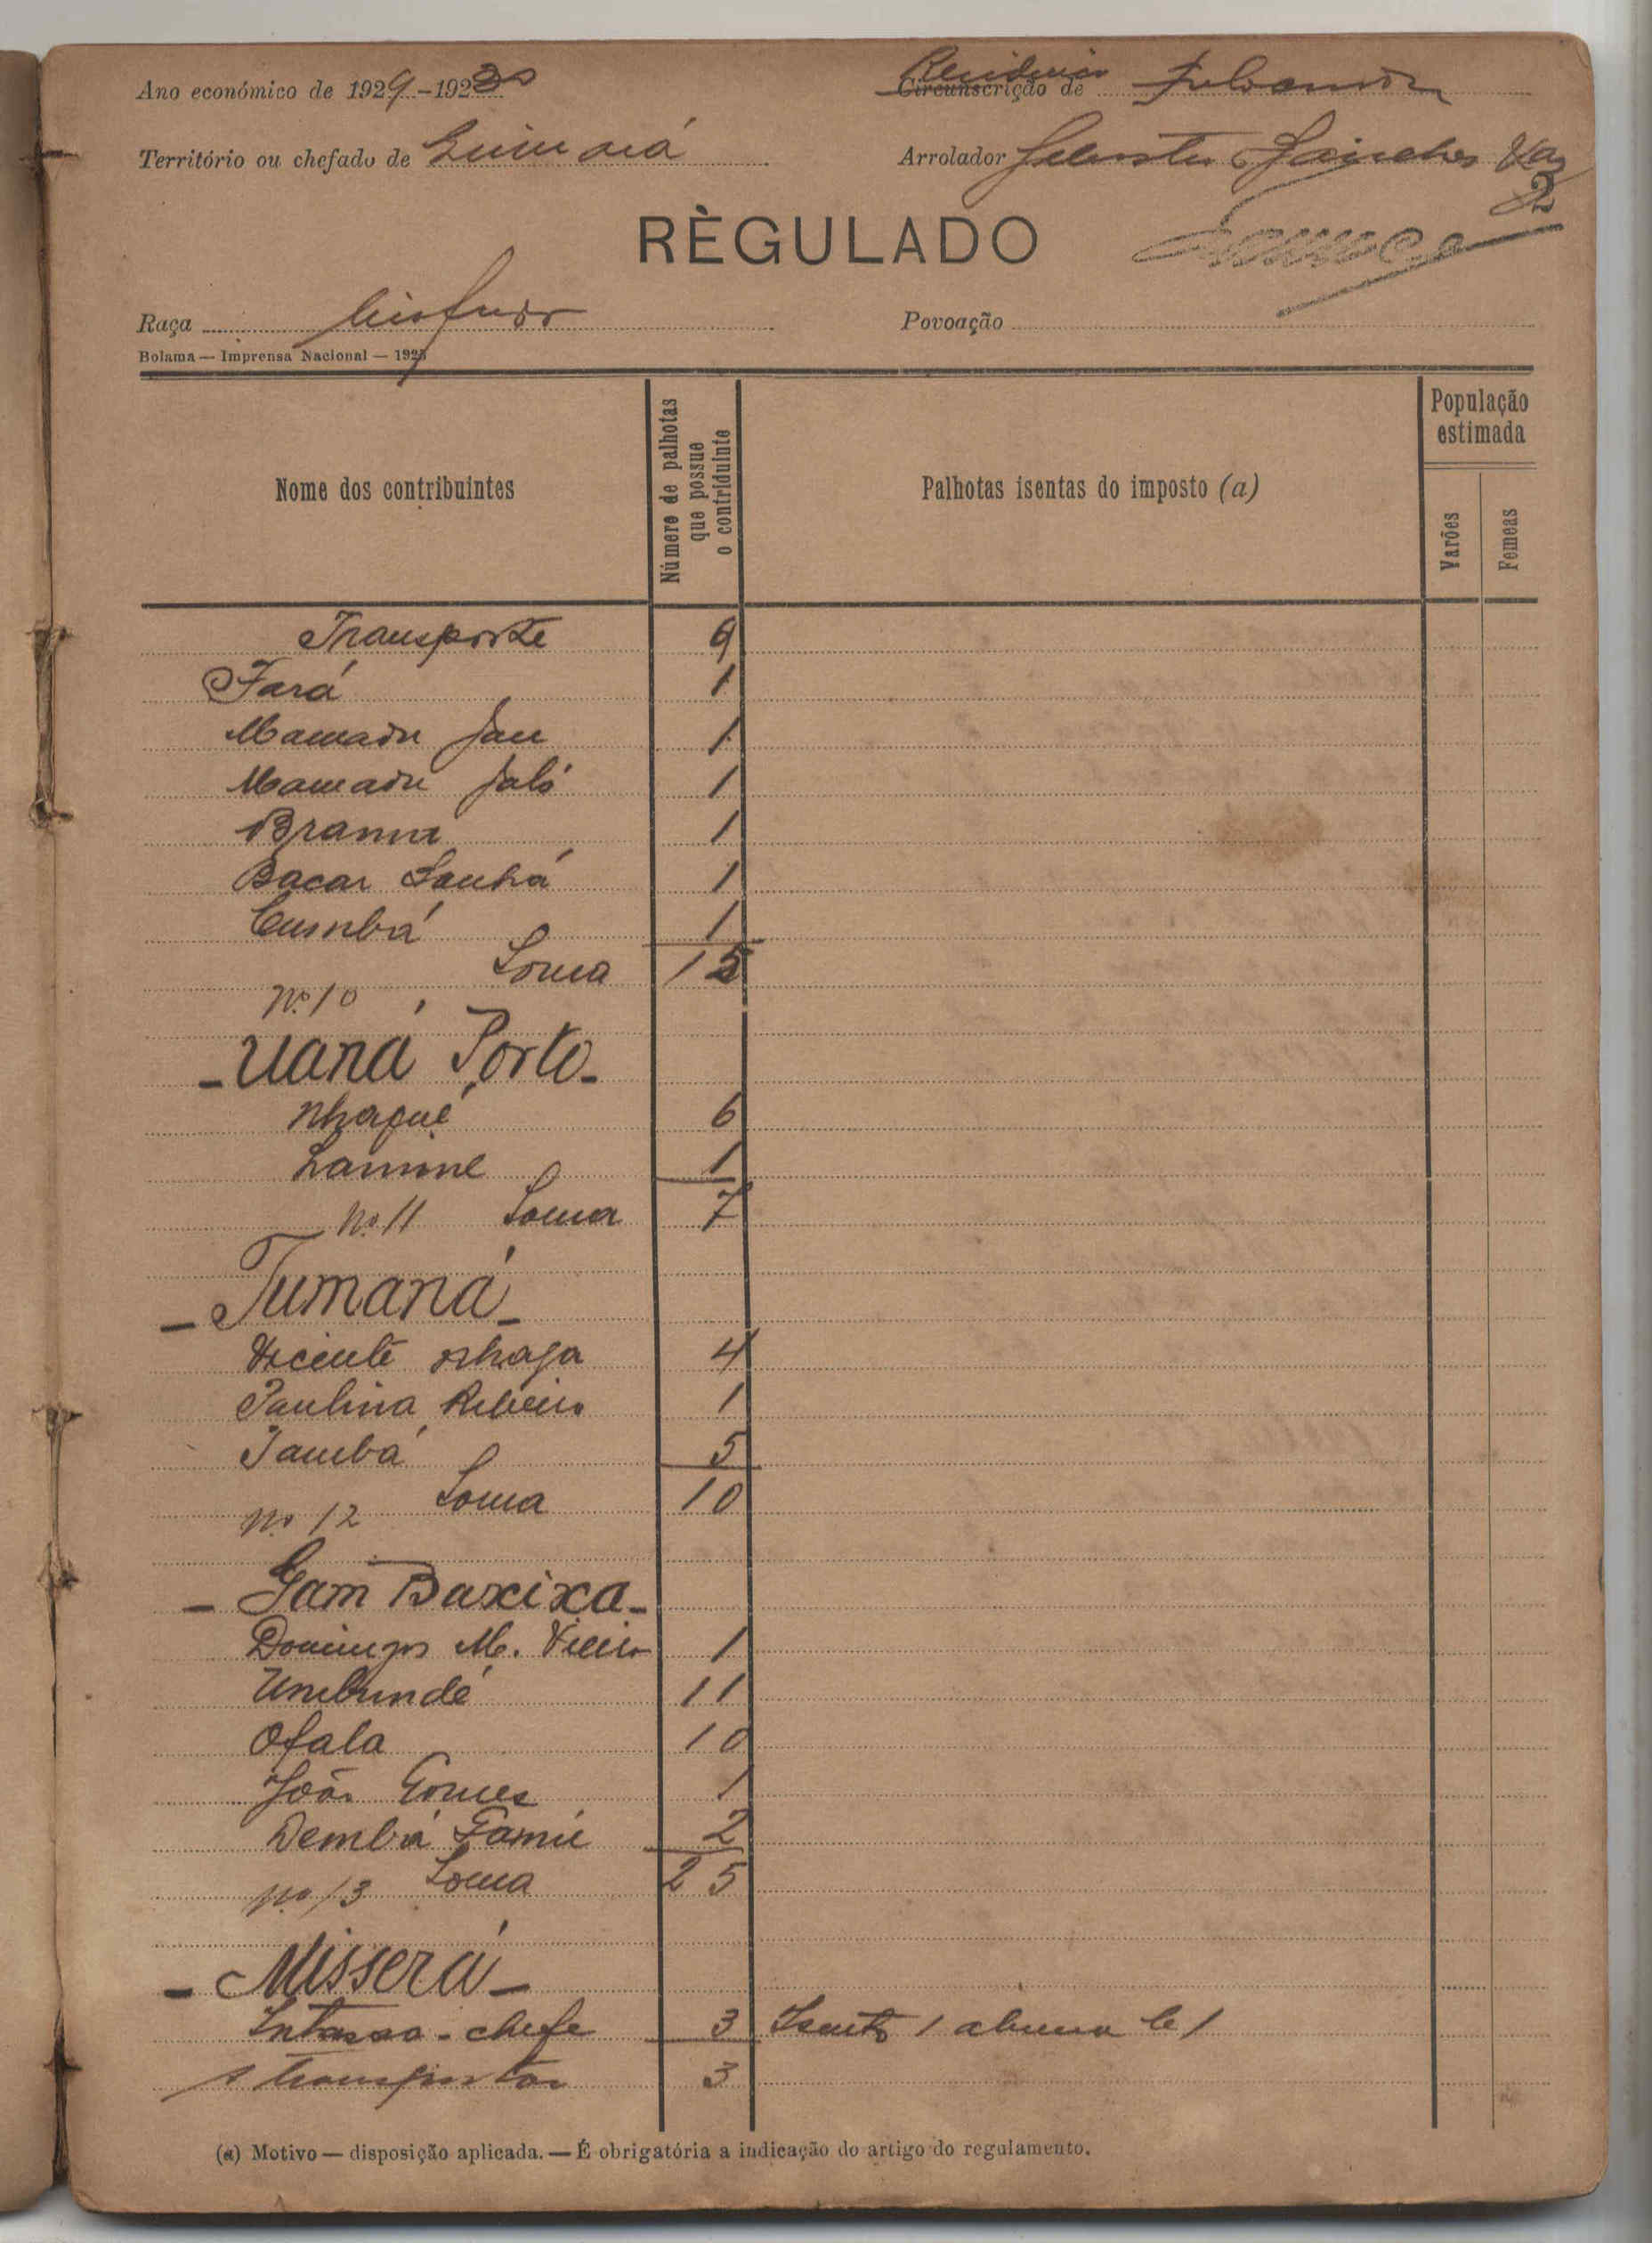 Ano económico de 1929-1930
Residencia Circunscrição de
Território ou chefado de
Arrolador Sanches Vaz
2
RÈGULADO
Raça
Povoação
Bolama — Imprensa Nacional — 1925
Nome dos contribuintes
Número de palhotas que possue o contriduinte
Palhotas isentas do imposto (a)
População estimada
Varões
Femeas
Transporte 9
Fará 1
Mamadu Jau 1
Mamadu Jaló 1
Brama 1
Bacar Sanhá 1
Cumbá 1
Soma 15
Nº 10
- Uaná Porto -
Nhaqué 6
Lamine 1
Nº 11 Soma 7
- Tumaná -
Vicente Nhaga 4
Paulina Ribeiro 1
Tambá 5
Soma 10
Nº 12
- Gam Baxixa -
Domingos M. Vieira 1
Umbundé 11
Ofala 10
João Gomes 1
Dembá Famé 2
Nº 13 Soma 25
- Missera -
Intasso - chefe 3 Isento 1
A transportar 3
(a) Motivo — disposição aplicada. — É obrigatória a indicação do artigo do regulamento.